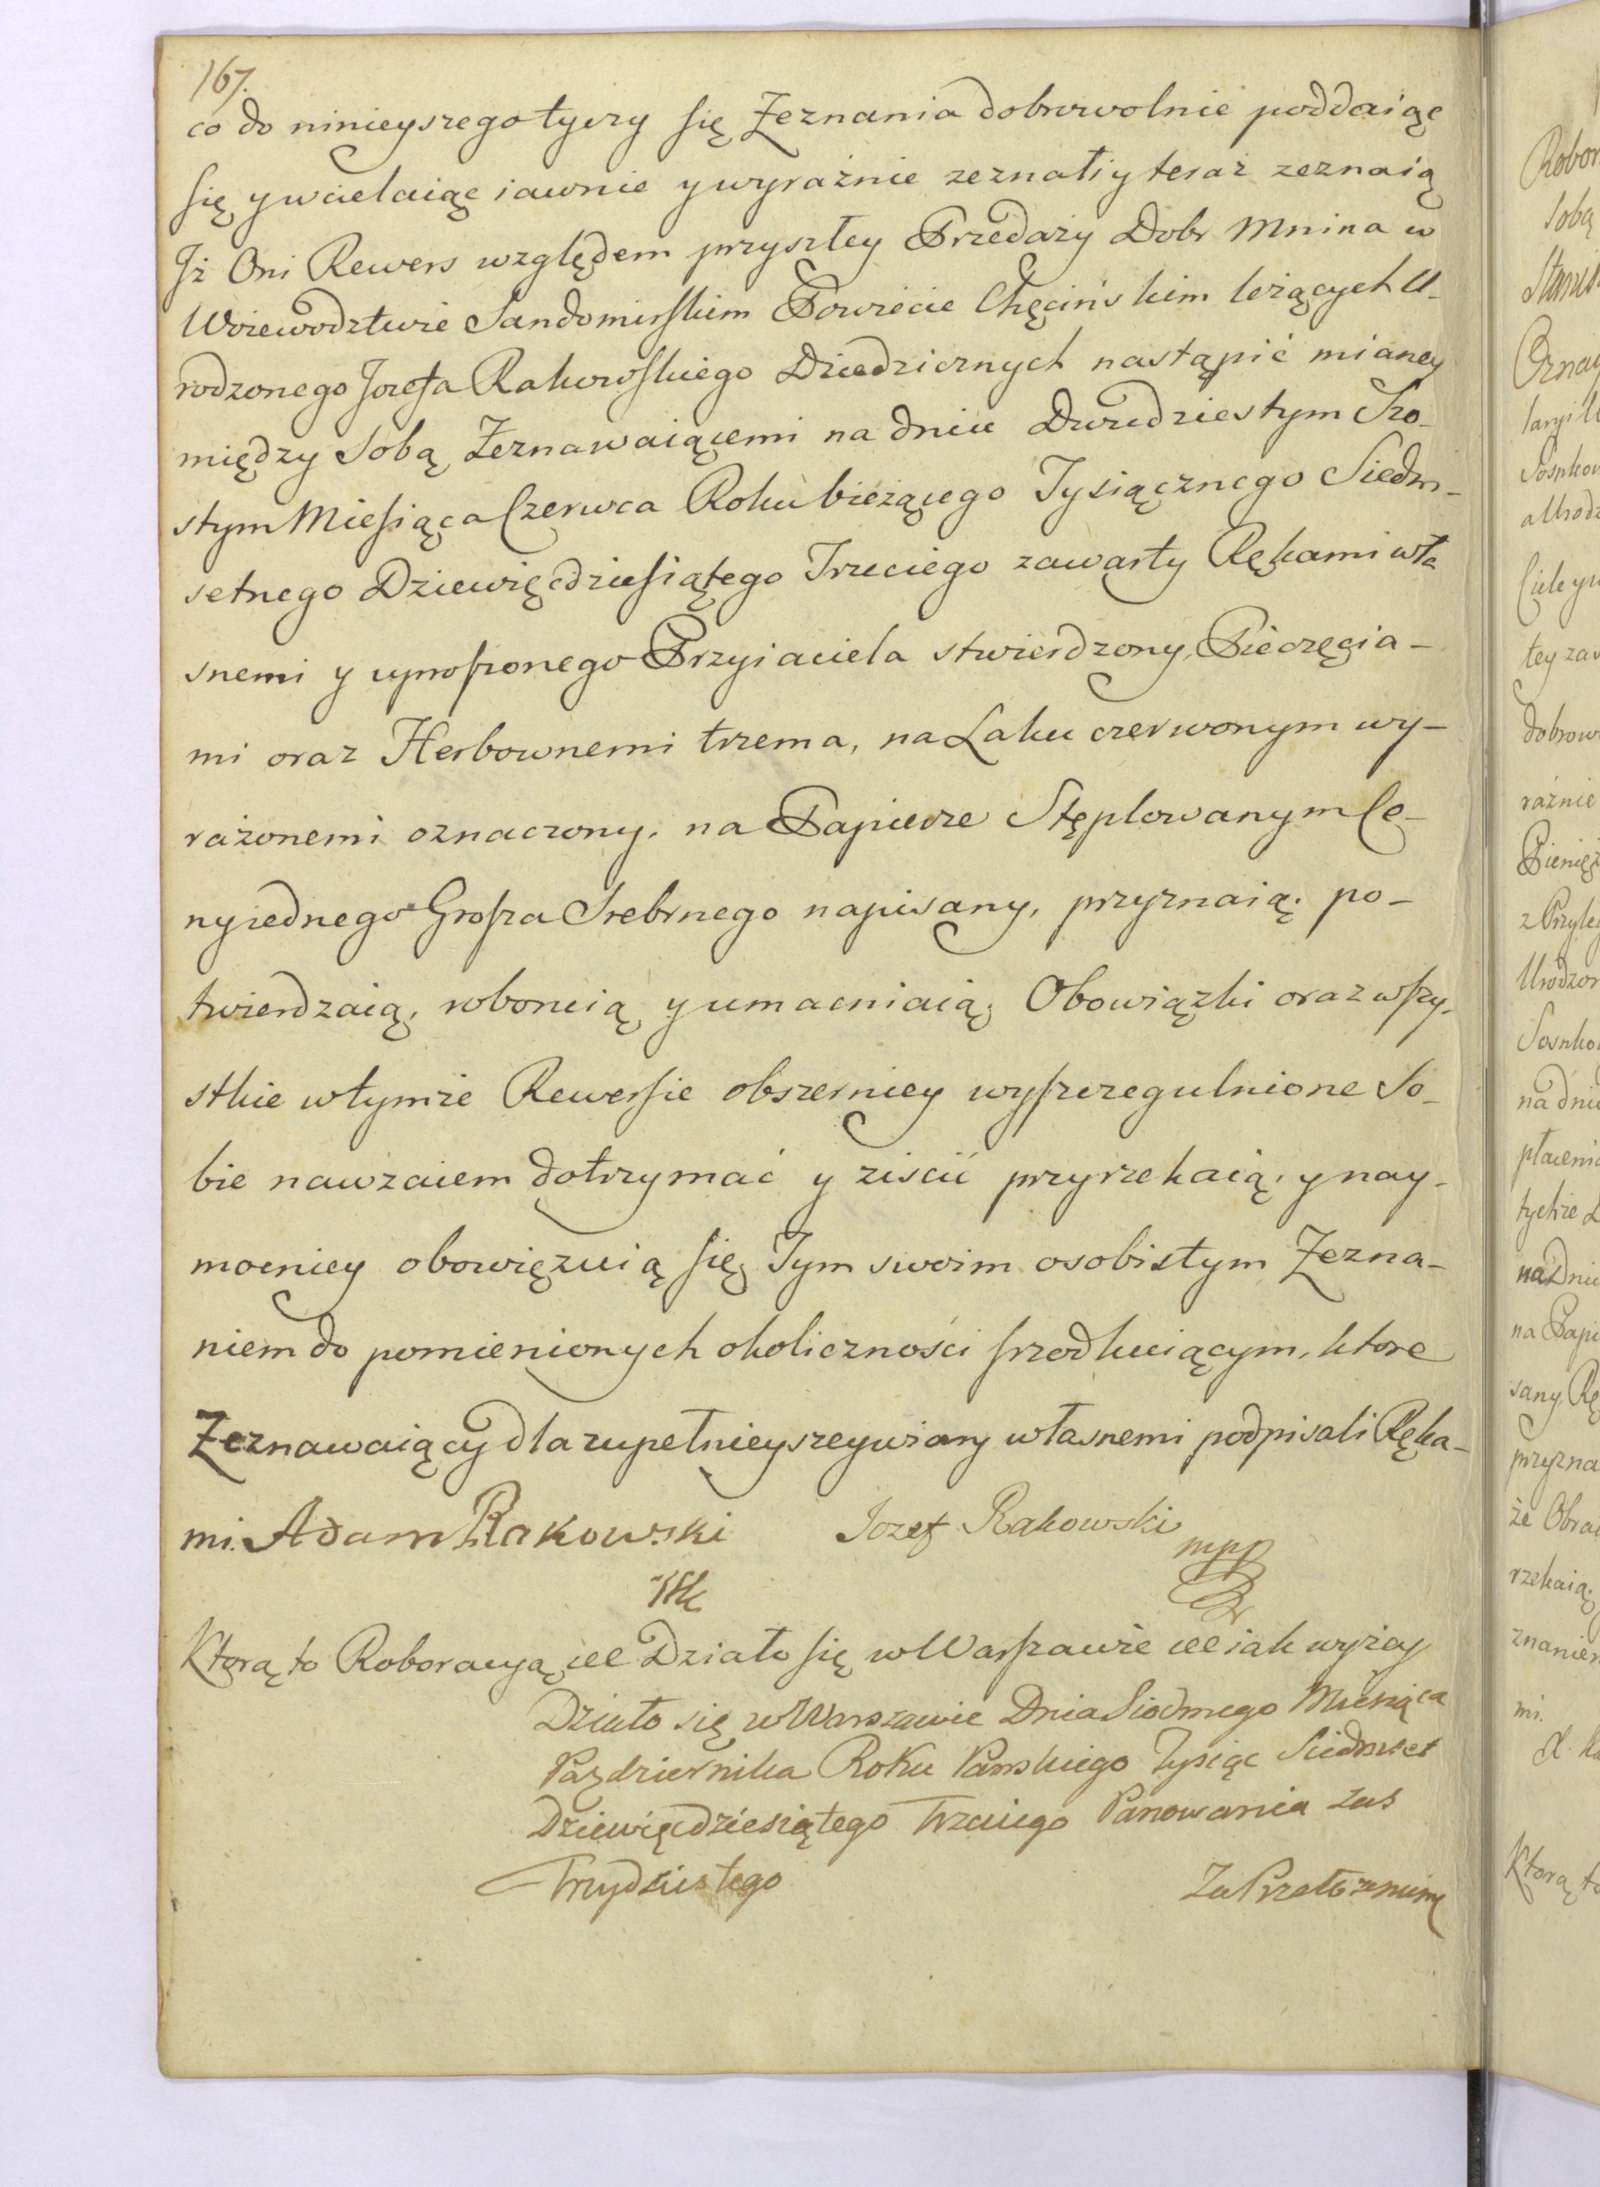 167.
co do ninieyszego tyczy się Zeznania dobrowolnie poddaiąc
się y wcielaiąc iawnie y wyraźnie zeznali y teraz zeznaią
Jż Oni Rewers względem przyszłey Przedaży Dobr Mnina w
Woiewodztwie Sandomirskim Powiecie Chęcińskim leżących U-
rodzonego Jozefa Rakowskiego Dziedzicznych nastąpić mianey
między Sobą Zeznawaiącemi na dniu Dwudziestym Szo-
stym Miesiąca Czerwca Roku bieżącego Tysiącznego Siedm-
setnego Dziewięćdziesiątego Trzeciego zawarty Rękami wła
snemi y uproszonego Przyiaciela stwierdzony, Pieczęcia-
mi oraz Herbownemi trzema, na Laku czerwonym wy-
rażonemi oznaczony, na Papierze Stęplowanym Ce-
ny iednego Grosza Srebrnego napisany, przyznaią, po-
twierdzaią, roboruią y umacniaią, Obowiązki oraz wszy-
stkie w tymże Rewersie obszerniey wyszczegulnione So-
bie nawzaiem dotrzymać y ziscić przyrzekaią, y nay-
mocniey obowięzuią się, Tym swoim osobistym Zezna-
niem do pomienionych okoliczności srzodkuiącym, ktore
Zeznawaiący dla zupełnieyszey wiary własnemi podpisali Ręka-
mi. Adam Rakowski Jozef Rakowski
mpp
Ktorą to Roboracyą etc Działo się w Warszawie etc iak wyżey
Działo się w Warszawie Dnia Siodmego Miesiąca
Pazdziernika Roku Panskiego Tysiąc Siedmset
Dziewięcdziesiątego Trzeciego Panowania zas
Trzydziestego
Robor
sobą
Stanis
dobrow
raźnie
Pienięż
z Przyleg
Urodzon
na dniu
na Dniu
na Papie
sany, Rę
przyzna
że Obow
rzekaią,
znaniem
mi.
Ktorą to